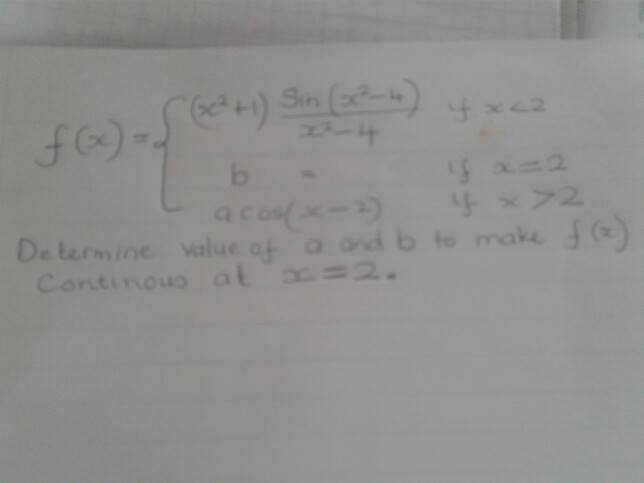 f(x) = { (x²+1) Sin(x²-4)/x²-4 if x<2
b = if x=2
a cos(x-2) if x>2
Determine value of a and b to make f(x)
Continous at x=2.